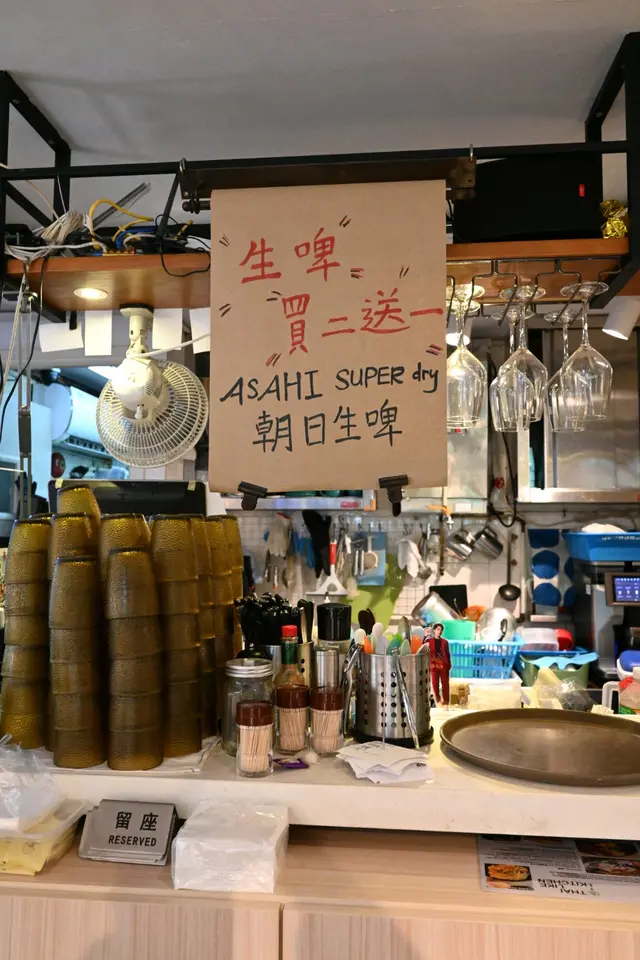 生啤
買二送一
ASAHI SUPER dry
朝日生啤
留座
RESERVED
THAI
I LIKE
KITCHEN